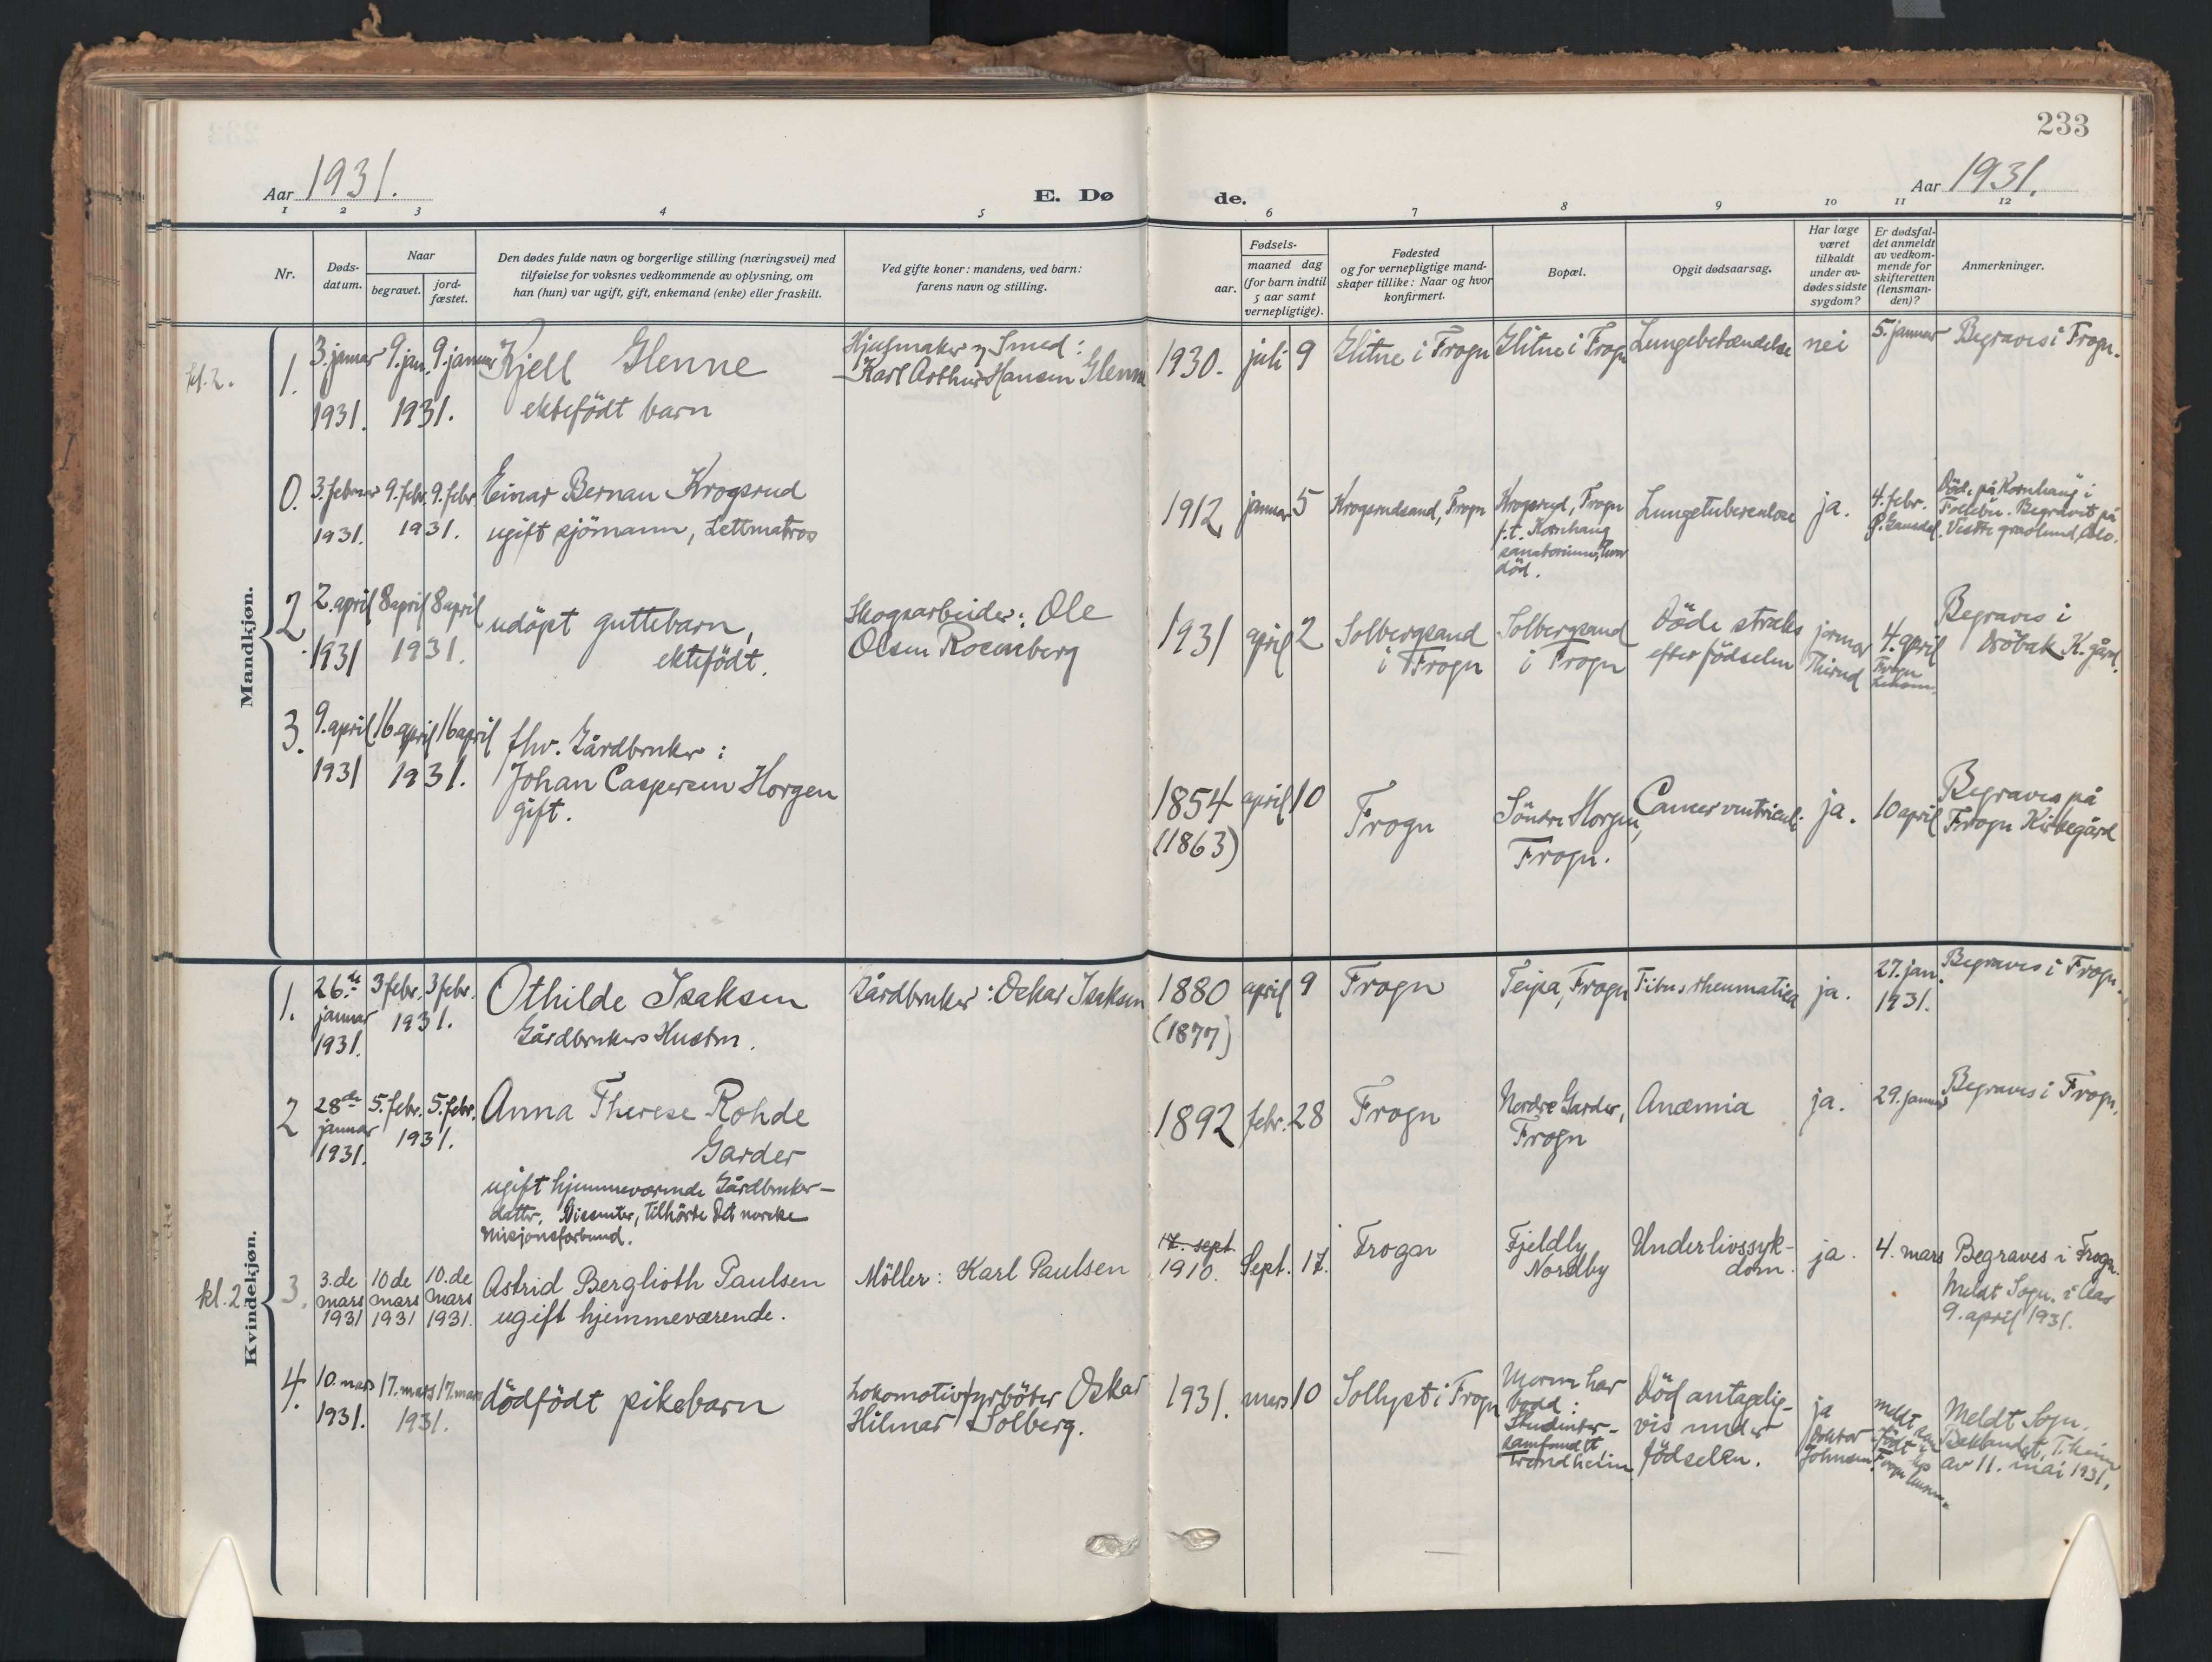 233
Aar 1931.
E. Dø
de.
Aar 1931.
1 2 3 4 5 6 7 8 9 10 11 12
Nr.
Døds-
datum.
Naar
begravet.
jord-
fæstet.
Den dødes fulde navn og borgerlige stilling (næringsvei) med
tilføielse for voksnes vedkommende av oplysning, om
han (hun) var ugift, gift, enkemand (enke) eller fraskilt.
Ved gifte koner: mandens, ved barn:
farens navn og stilling.
Fødsels-
aar.
maaned dag
(for barn indtil
5 aar samt
vernepligtige).
Fødested
og for vernepligtige mand-
skaper tillike: Naar og hvor
konfirmert.
Bopæl.
Opgit dødsaarsag.
Har læge
været
tilkaldt
under av-
dødes sidste
sygdom?
Er dødsfal-
det anmeldt
av vedkom-
mende for
skifteretten
(lensman-
den)?
Anmerkninger.
Mandkjøn.
kl. 2.
1.
3. januar
1931.
9. jan. 9. januar
1931.
Kjell Glenne
ektefödt barn
Hjulmaker og Smed:
Karl Arthur Hansen Glenne
1930.
juli
9
Glitne i Frogn
Glitne i Frogn
Lungebetændelse
nei
5. januar
Begraves i Frogn.
0.
3. februar
1931.
9. febr. 9. febr.
1931.
Einar Bernau Krogsrud
ugift sjömann, Lettmatros
1912
januar
5
Krogsrudsand, Frogn
Krogsrud, Frogn
f.t. Kornhaug
sanatorium,
död.
Lungetuberculose
ja.
4. febr.
Död. på Kornhaug i
Follebu. Begravet på
Vestre gravlund, Oslo.
2.
2. april
1931
8 april 8 april
1931.
udöpt guttebarn,
ektefödt.
Skogsarbeider: Ole
Olsen Rosenberg
1931
april
2
Solbergsand
i Frogn
Solbergsand
i Frogn
Döde straks
efter födselen
jormor
Thirud
4. april
Frogn
Lensm.
Begraves i
Dröbak K.gård.
3.
9. april
1931
16 april 16 april
1931.
fhv. Gårdbruker:
Johan Caspersen Horgen
gift.
1854
(1863)
april
10
Frogn
Söndre Horgen,
Frogn.
Cancer ventriculi.
ja.
10 april
Begraves på
Frogn Kirkegård
Kvindekjøn.
1.
26.de
januar
1931.
3 febr. 3 febr.
1931.
Othilde Isaksen
Gårdbrukers Hustru.
Gårdbruker: Oskar Isaksen
1880
(1877)
april
9
Frogn
Teipa, Frogn
Febris rheumatica
ja.
27. jan.
1931.
Begraves i Frogn.
2
28de
januar
1931.
5. febr. 5. febr.
1931.
Anna Therese Rohde
Garder
ugift hjemmeværende Gårdbruker-
datter. Dissenter, tilhörte Det norske
Misjonsforbund.
1892
febr.
28
Frogn
Nordre Garder,
Frogn
Anæmia
ja.
29. januar
Begraves i Frogn.
kl. 2
3.
3. de
mars
1931
10 de
mars
1931
10. de
mars
1931.
Astrid Berglioth Paulsen
ugift hjemmeværende.
Möller: Karl Paulsen
17. sept
1910.
Sept.
17.
Frogn
Fjeldly
Nordby
Underlivssyk-
dom.
ja.
4. mars
Begraves i Frogn.
Meldt Sogn. i Aas
9. april 1931.
4.
10. mars
1931.
17. mars 17. mars
1931.
dödfödt pikebarn
Lokomotivfyrböter Oskar
Hilmar Solberg.
1931.
mars
10
Sollyst i Frogn
Moren har
bodd:
Studenter-
samfundet
Trondheim
Död antagelig-
vis under
födselen.
ja
doktor
Johnsen.
meldt
födt i
Frogn
Meldt Sogn.
av 11. mai 1931.